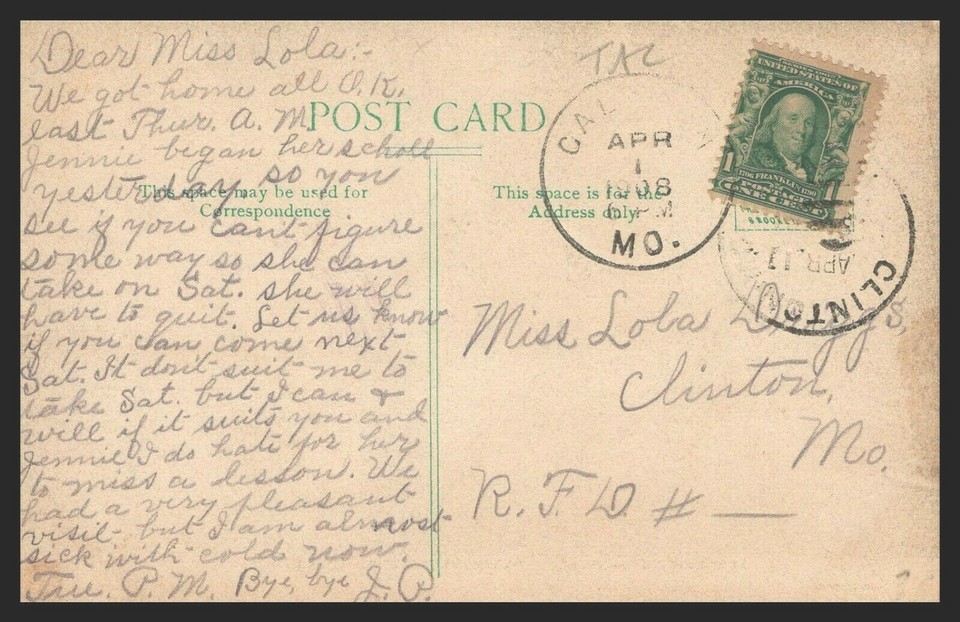 Dear Miss Lola:-
We got home all O.K.
last Thur. A. M.
Jennie began her scholl
yesterday so you
see if you can't figure
some way so she can
take on Sat. she will
have to quit. Let us know
if you can come next
Sat. It don't suit me to
take Sat. but I can &
will if it suits you and
Jennie I do hate for her
to miss a lesson. We
had a very pleasant
visit but I am almost
sick with cold now.
Tue. P. M. Bye, bye J. P.
POST CARD
This space may be used for
Correspondence
This space is for the
Address only
TAL
CAL
APR
1
1908
6 PM
MO.
UNITED STATES OF
AMERICA
1706 FRANKLIN 1790
POSTAGE
1 ONE CENT 1
CLINTON
APR
Miss Lola
Clinton,
Mo.
R. F. D. # —